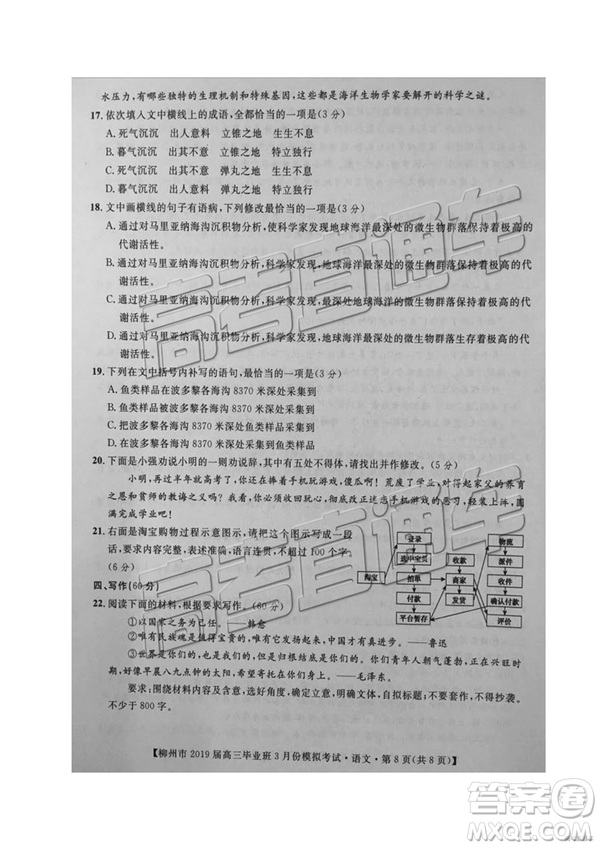 水压力,有哪些独特的生理机制和特殊基因,这些都是海洋生物学家要解开的科学之谜。
17.依次填入文中横线上的成语,全都恰当的一项是(3分)
A.死气沉沉 出人意料 立锥之地 生生不息
B.暮气沉沉 出其不意 立锥之地 特立独行
C.死气沉沉 出其不意 弹丸之地 生生不息
D.暮气沉沉 出人意料 弹丸之地 特立独行
18.文中画横线的句子有语病,下列修改最恰当的一项是(3分)
A.通过对马里亚纳海沟沉积物分析,使科学家发现地球海洋最深处的微生物群落保持着极高的
代谢活性。
B.通过对马里亚纳海沟沉积物分析,科学家发现,地球海洋最深处的微生物群落保持着极高的代
谢活性。
C.通过对马里亚纳海沟沉积物的分析,科学家发现,地球海洋最深处的微生物群落有着极高的代
谢活性。
D.通过对马里亚纳海沟沉积物分析,科学家发现,地球海洋最深处的微生物群落生存着极高的代
谢活性。
19.下列在文中括号内补写的语句,最恰当的一项是(3分)
A.鱼类样品在波多黎各海沟8370米深处采集到
B.鱼类样品在波多黎各海沟8370米深处采集到
C.在波多黎各海沟8370米深处采集到鱼类样品
D.在波多黎各海沟8370米深处采集到
20.下面是小强劝说小明的一则劝说辞,其中有五处不得体,请找出并作修改。(5分)
小明,再过半年就高考了,你还在捧着手机玩游戏,傻瓜啊!对得起家父的养育
之恩和贵师的教诲之义吗?希望你悬崖勒马,改正过去迷恋手机游戏的恶习,轻装上阵,圆
满完成学业!
21.右面是淘宝购物过程示意图示,请把这个图示写成一段
话,要求内容完整,表述准确,语言连贯,不超过100个字。
(6分)
登录
选中宝贝
淘宝
拍单
付款
平台暂存
收款
商家
发货
物流
派件
收件
确认付款
评价
四、写作(60分)
22.阅读下面的材料,根据要求写作。(60分)
①以国家之务为己任。——韩愈
②唯有民魂是值得宝贵的,唯有他发扬起来,中国才有真进步。——鲁迅
③世界是你们的,也是我们的,但是归根结底是你们的。你们青年人朝气蓬勃,正在兴旺时
期,好像早晨八九点钟的太阳,希望寄托在你们身上。——毛泽东。
要求:围绕材料内容及含意,选好角度,确定立意,明确文体,自拟标题;不要套作,不得抄袭。
不少于800字。
【柳州市2019届高三毕业班3月份模拟考试·语文·第8页(共8页)】
高考直通车
答案圈
MXQE.COM